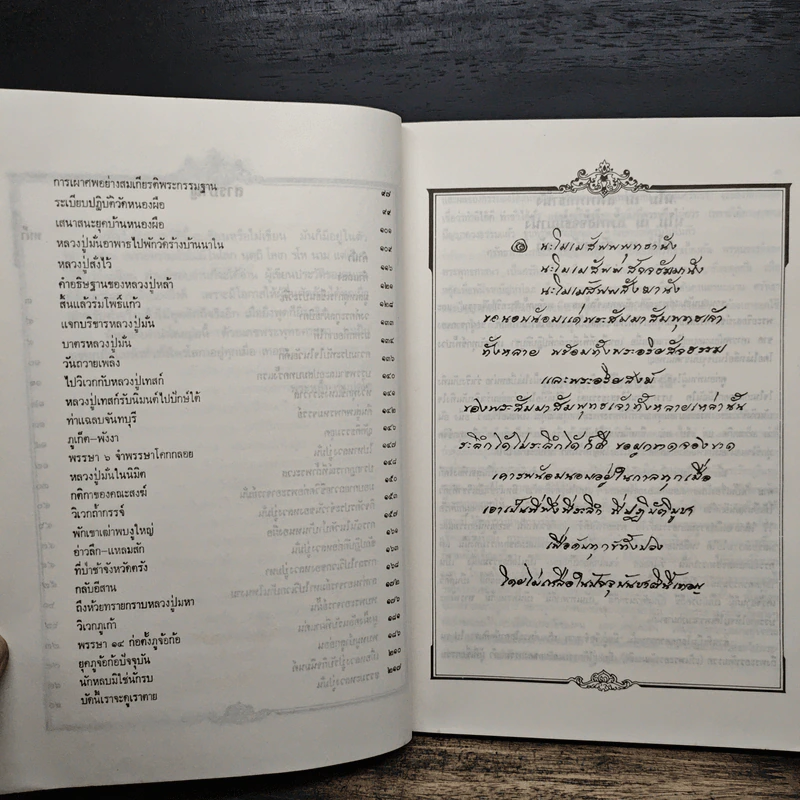 การเผาศพอย่างสมเกียรติพระกรรมฐาน ๙๗
ระเบียบปฏิบัติวัดหนองผือ ๙๙
เสนาสนะยุคบ้านหนองผือ ๑๐๑
หลวงปู่มั่นอาพาธไปพักวัดร้างบ้านนาใน ๑๐๔
หลวงปู่สั่งไว้ ๑๑๖
คำอธิษฐานของหลวงปู่หล้า ๑๒๑
สิ้นแล้วร่มโพธิ์แก้ว ๑๒๘
แจกบริขารหลวงปู่มั่น ๑๓๓
บาตรหลวงปู่มั่น ๑๓๔
วันถวายเพลิง ๑๓๖
ไปวิเวกกับหลวงปู่เทสก์ ๑๔๐
หลวงปู่เทสก์รับนิมนต์ไปปักษ์ใต้ ๑๔๑
ท่าแฉลบจันทบุรี ๑๔๒
ภูเก็ต-พังงา ๑๔๖
พรรษา ๖ จำพรรษาโคกกลอย ๑๔๗
หลวงปู่มั่นในนิมิต ๑๔๘
กติกาของคณะสงฆ์ ๑๕๐
วิเวกถ้ำกรรจ์ ๑๕๐
พักเขาเฒ่าพบงูใหญ่ ๑๕๗
อ่าวลึก-แหลมสัก ๑๖๑
ที่ป่าช้าจังหวัดตรัง ๑๖๓
กลับอีสาน ๑๖๔
ถึงห้วยทรายกราบหลวงปู่มหา ๑๗๒
วิเวกภูเก้า ๑๗๖
พรรษา ๑๔ ก่อตั้งภูจ้อก้อ ๑๘๑
ยุคภูจ้อก้อปัจจุบัน ๑๘๖
นักหลบมิใช่นักรบ ๒๑๐
บัดนี้เราจะดูเราตาย ๒๑๗
๏ นะโมเมสัพพพุทธานัง
นะโมเมสัพพสัจจธัมมานัง
นะโมเมสัพพสังฆานัง
ขอนอบน้อมแด่พระสัมมาสัมพุทธเจ้า
ทั้งหลาย พร้อมทั้งพระอริยสัจธรรม
และพระอริยสงฆ์
ของพระสัมมาสัมพุทธเจ้าทั้งหลายเหล่านั้น
ระลึกได้ไม่ระลึกได้ก็ดี ขอผูกขาดจองขาด
เคารพนอบนอบอยู่ในกาลทุกเมื่อ
เอาเป็นที่พึ่งที่ระลึก ที่ปฏิบัติบูชา
เพื่อดับทุกข์ทั้งปวง
โดยไม่เหลือในปัจจุบันชาตินี้เทอญ